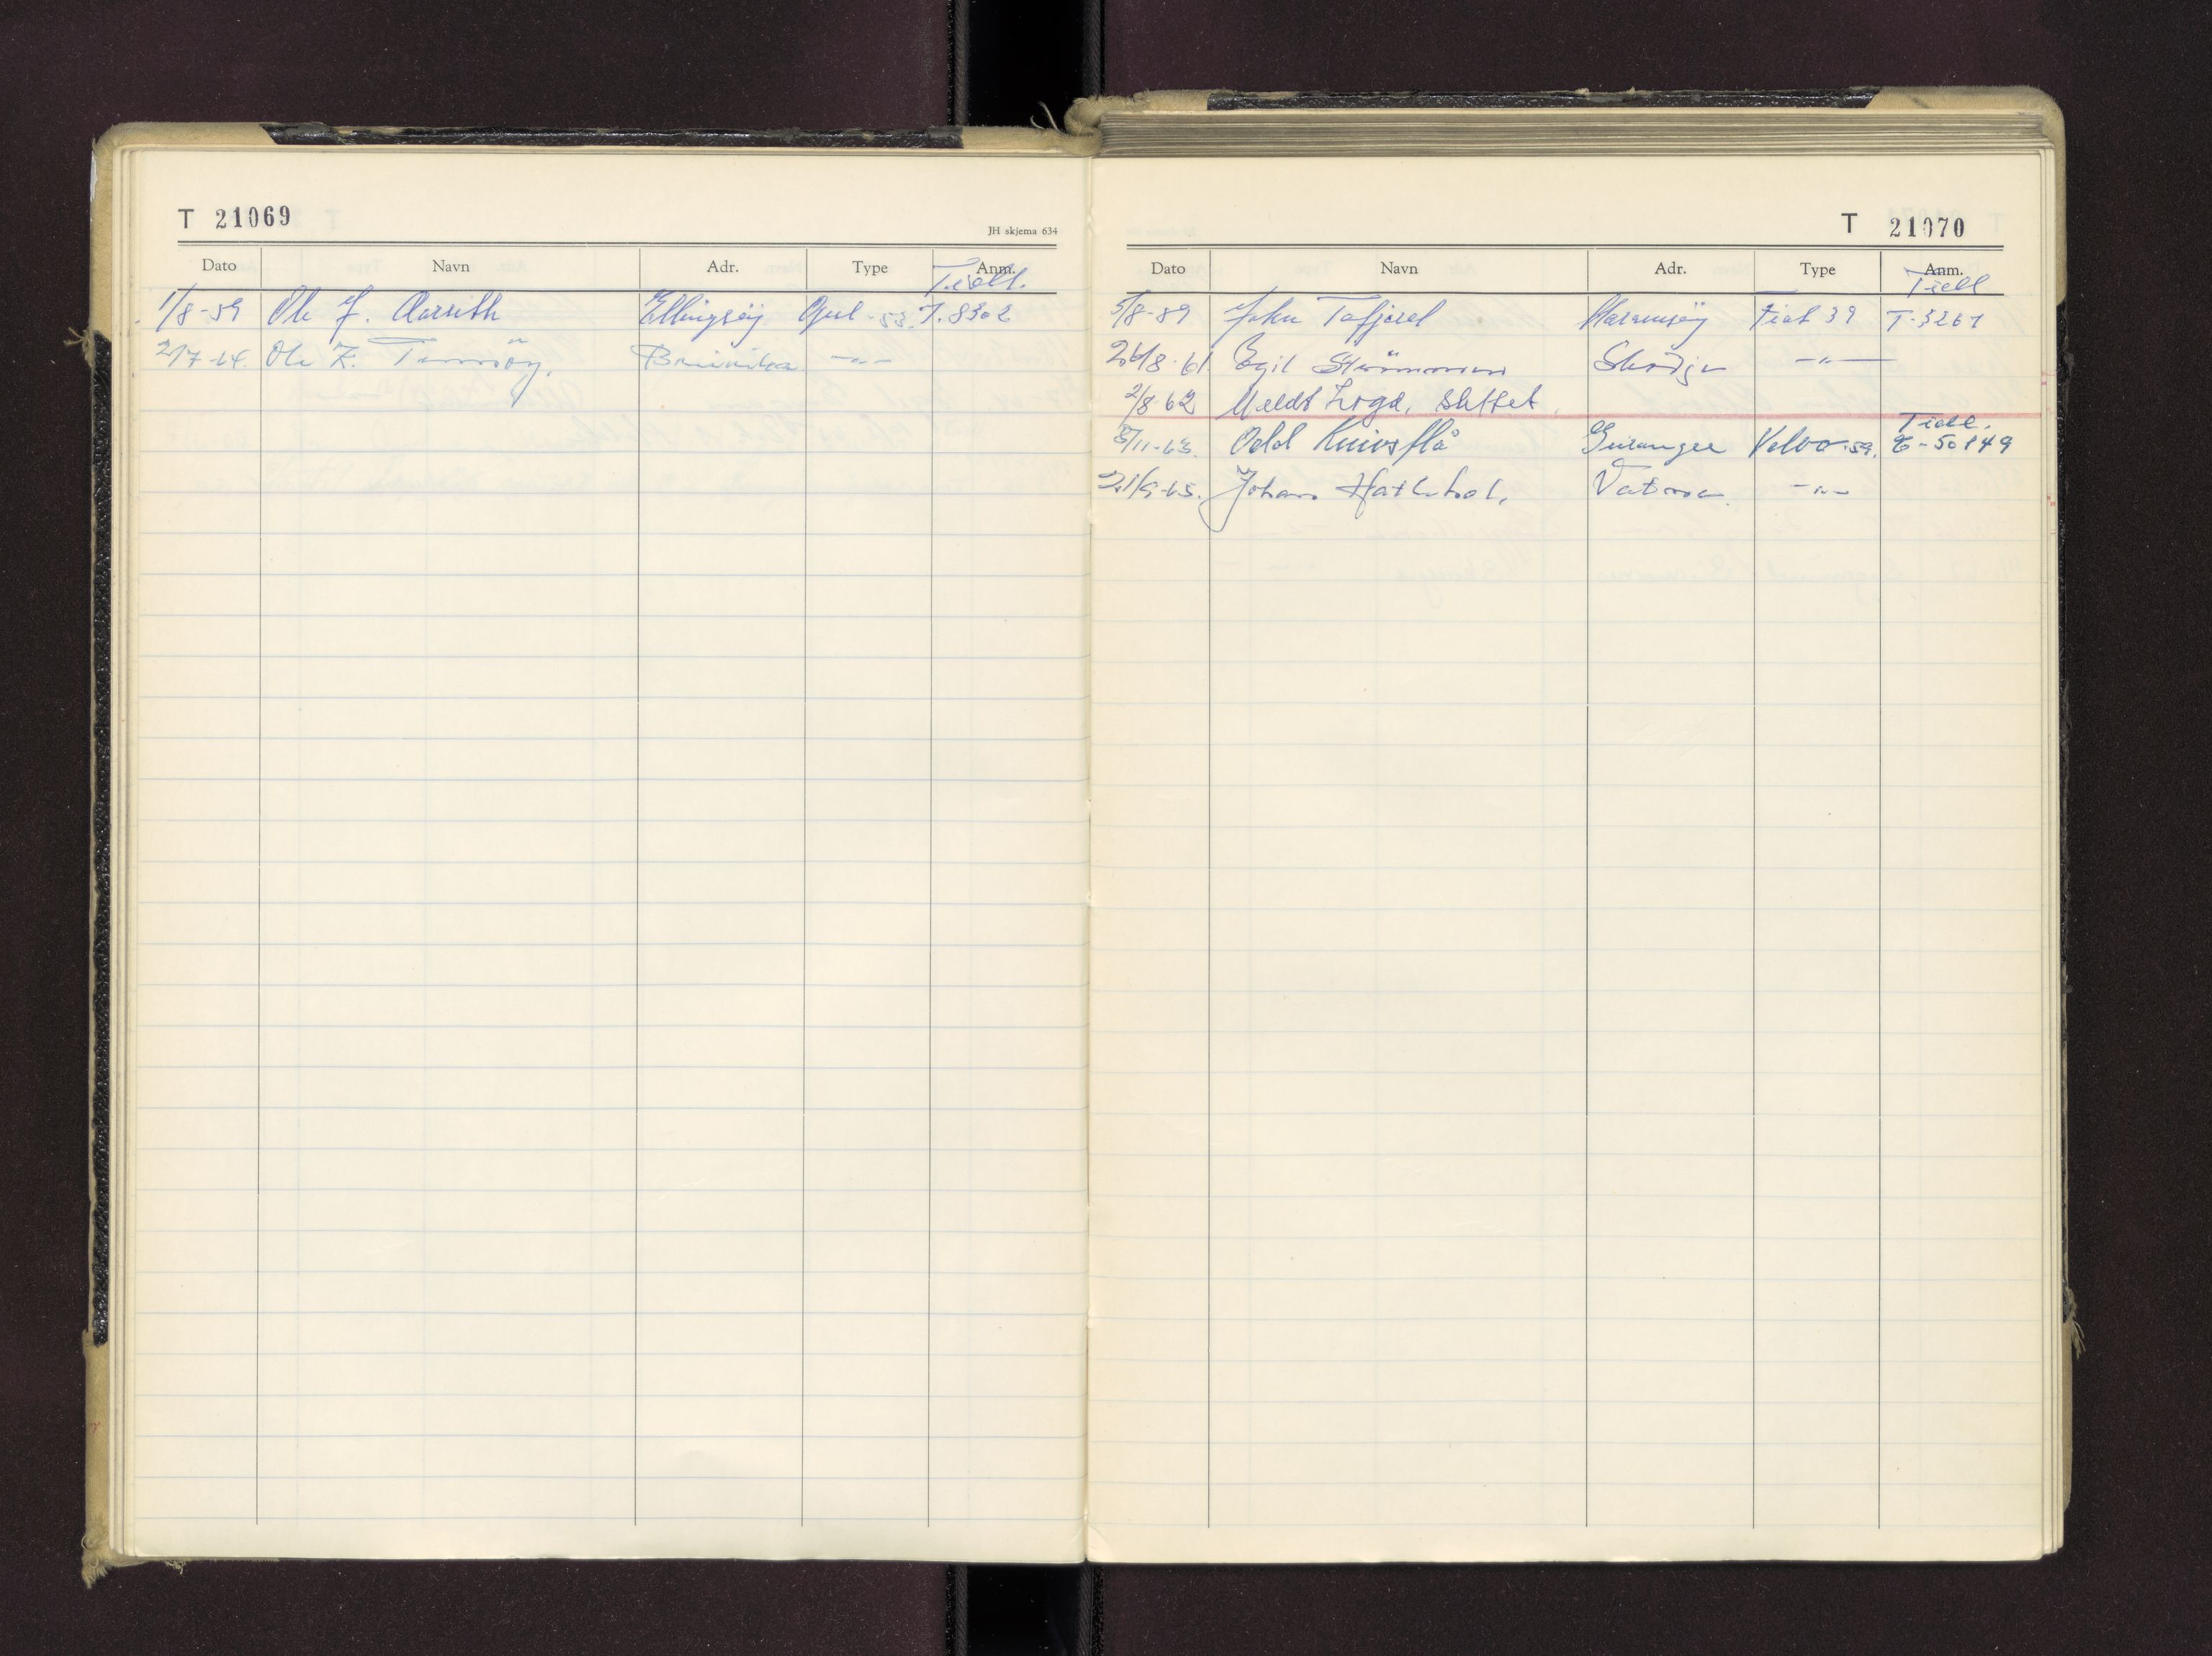 T 21069
JH skjema 634
Dato Navn Adr. Type Anm.
Tidl.
1/8-59 Ole J. Aarseth Ellingsøy Opel -53. T.8302
2/7-64. Ole K. Brunvika -"-
T 21070
Dato Navn Adr. Type Anm.
Tidl
5/8-59 John Tafjord Haramsøy Fiat 39 T-3267
26/8-61. Egil Skodje -"-
2/8-62 Meldt hogd, slettet
8/11-63. Odd Knivsflå Geiranger Volvo-59.
Tidl.
-50149
21/9-65. Johan Hatlehol. Vatne -"-